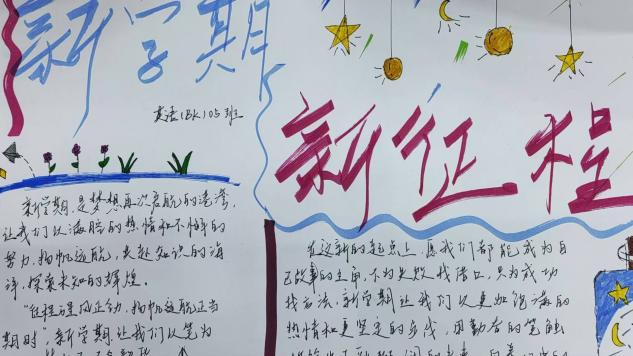 新学期
新征程
英语(BK)05班
新学期,是梦想再次启航的港湾,
让我们以满腔的热情和不懈的
努力,扬帆远航,去赴知识的海
洋,探索未知的辉煌。
"征程漫漫风正劲,扬帆远航正当
期时",新学期,让我们以笔为
在这新的起点上,愿我们都能成为自
己故事的主角,不为失败找借口,只为成功
找方法,新学期让我们以更加饱满的
热情和更坚定的步伐,用勤奋的笔触